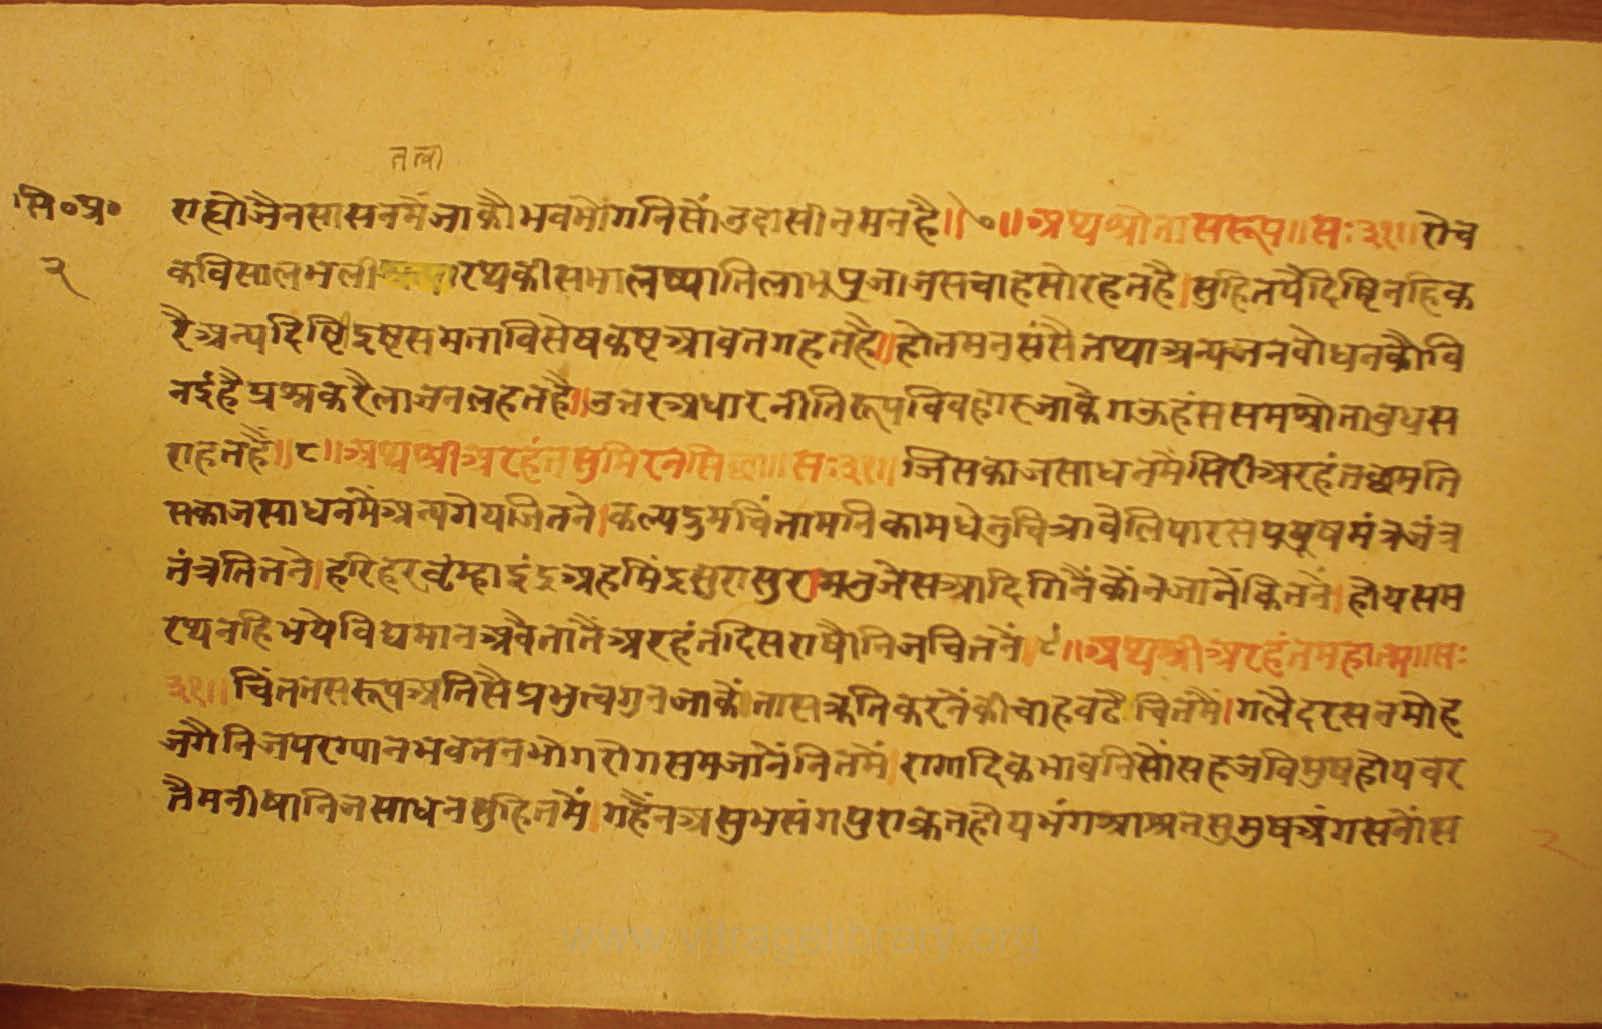 तत्वा
सि०प्र०
२
राच्यो जैनसासनमैं जाकौ भवभोगनिसौं उदासीन मन है॥७॥अथ श्रोतासरूप॥सः३१॥रोच
कविसाल भली रथकी सभाल ष्याति लाभ पुजा जस चाहसो रहत है।सुहितपैं दिष्टि नहि क
रै अन्य दिष्टि इष्ट समता विसेष कष्ट आवत गहत है॥होत मन संसै तथा अन्यजन बोधनकौ वि
नई है प्रश्न करै लाज न लहत है॥उन्नरअधार नीति रूप विवहार जाकै गऊ हंस सम श्रोता बुध स
राहत है॥८॥अथ श्रीअरहंत सुमिरन सिछा॥सः३१॥जिस काज साधनमैं सिरीअरहंत छम ति
स काज साधनमैं अन्य गेय जितने।कल्पद्रुम चिंतामनि कामधेनु चित्राबेलि पारस पुरुष मंत्र जंत्र
तंत्र तितने।हरि हर ब्रंम्हा इंद्र अहमिंद्र सुरासुर मनुजेस आदि गिनैं कौन जानैं कितनैं।होय सम
रथ नहि भये विद्यमान अवै तातैं अरहंत दिस राषौ निज चितनैं।९॥अथ श्रीअरहंतमहात्म॥सः
३१॥चिंतत सरूप अतिसै प्रभुत्व गुन जाकै तास क्रति करनैंकी चाह वढै चितमैं।गलै दरसनमोह
जगै निज पर ग्यान भव तन भोग रोग सम जानैं नितमैं।रागादिक भावनिसौं सहज विमुष होय वर
तै मनीषा निज साधन सुहितमैं।गहैं न असुभ संग पुराक्रत होय भंग आश्रत सुमुष अंग सनौं स
२
www.vitragelibrary.org